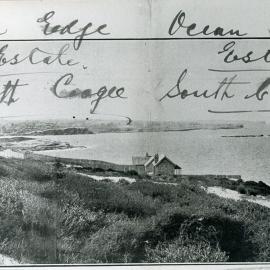 Edge Ocean
Estate. Est
th Coogee South C